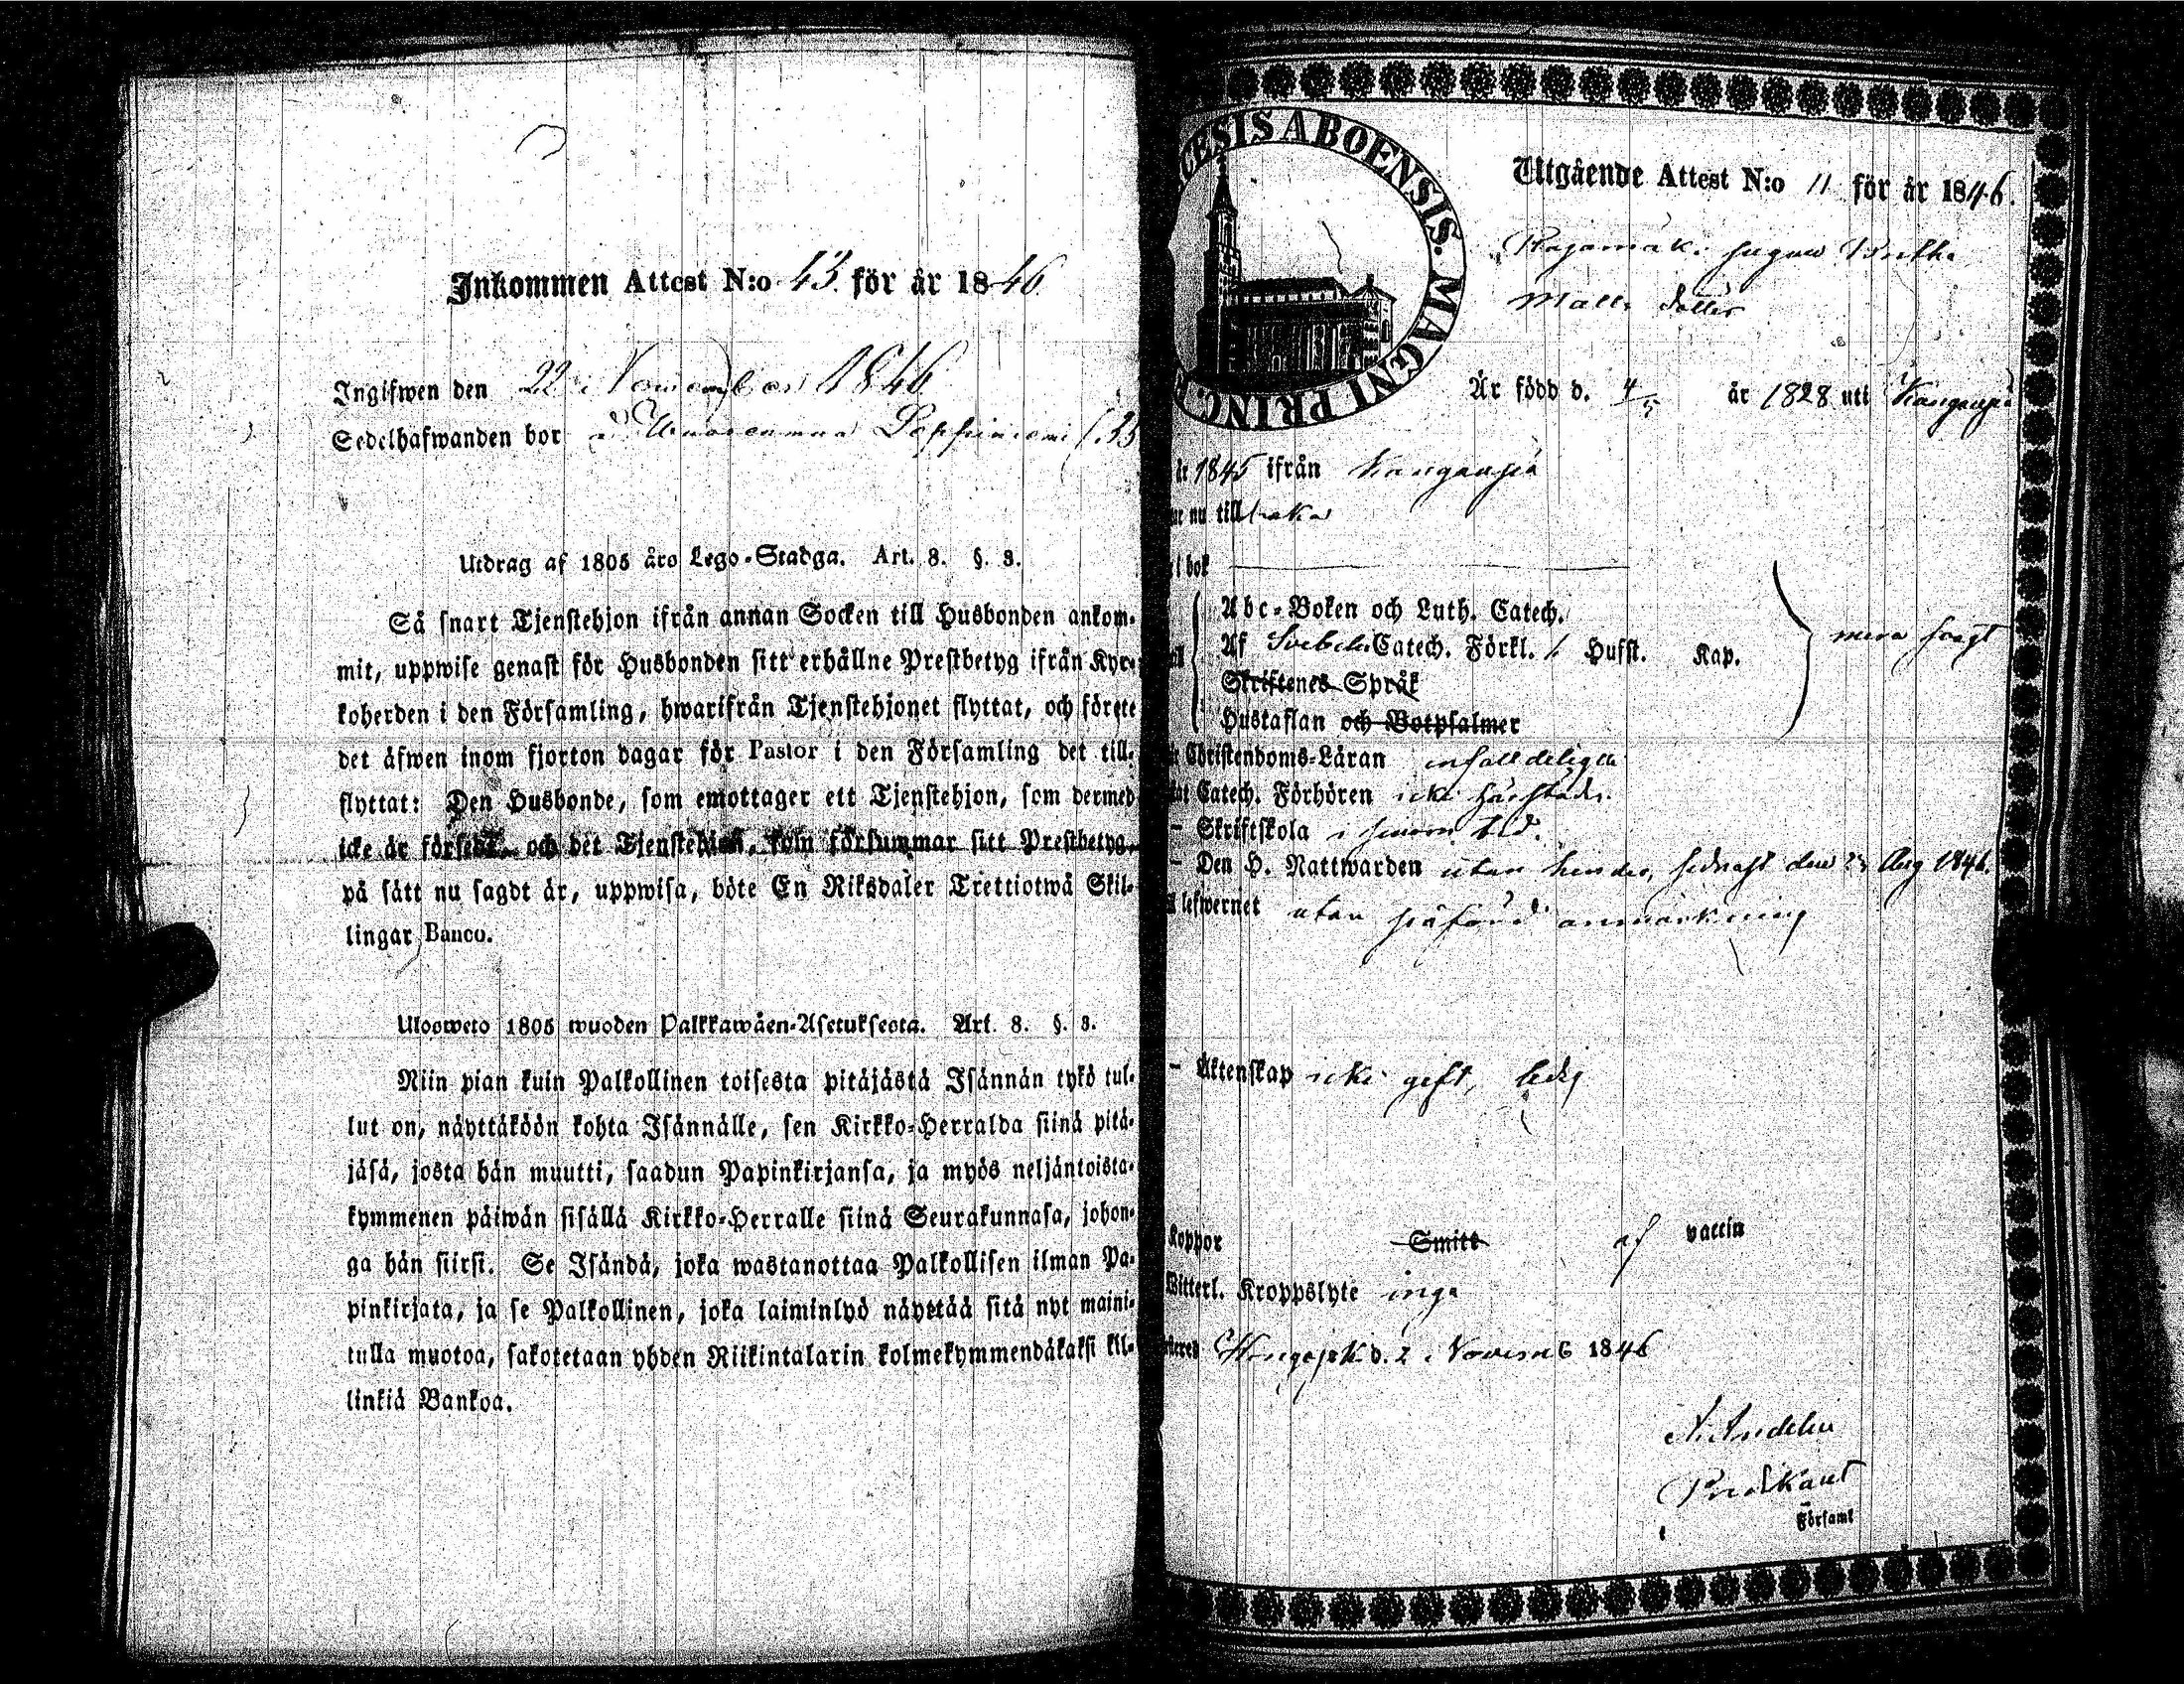 Inkommen Attest N:o 43 för år 1846
Ingifwen den 22 November 1846
Sedelhafwanden bor
Utdrag af 1805 års Lego-Stadga. Art. 8. §. 3.
Så snart Tjenstehjon ifrån annan Socken till Husbonden ankom-
mit, uppwise genast för Husbonden sitt erhållne Prestbetyg ifrån Kyr-
koherden i den Församling, hwarifrån Tjenstehjonet flyttat, och förete
det äfwen inom fjorton dagar för Pastor i den Församling det till-
flyttat: Den Husbonde, som emottager ett Tjenstehjon, som dermed
icke är försedt, och det Tjenstehjon, som försummar sitt Prestbetyg,
på sätt nu sagdt är, uppwisa, böte En Riksdaler Trettiotwå Skil-
lingar Banco.
Ulosweto 1805 wuoden Palkkawäen-Asetuksesta. Art. 8. §. 3.
Niin pian kuin Palkollinen toisesta pitäjästä Isännän tykö tul-
lut on, näyttäköön kohta Isännälle, sen Kirkko-Herralda siinä pitä-
jäsä, josta hän muutti, saadun Papinkirjansa, ja myös neljäntoista-
kymmenen päiwän sisällä Kirkko-Herralle siinä Seurakunnasa, johon-
ga hän siirsi. Se Isändä, joka wastanottaa Palkollisen ilman Pa-
pinkirjata, ja se Palkollinen, joka laiminlyö näyttää sitä nyt maini-
tulla muotoa, sakotetaan yhden Riikintalarin kolmekymmendäkaksi kil-
linkiä Bankoa.
CESIS ABOENSIS. MAGNI PRINC.
Utgående Attest N:o 11 för år 1846.
Matts dotter
Är född d. 4/5 år 1828 uti Kanganpä
år 1845 ifrån Kanganpä
nu tillbaka
i bok
Abc-Boken och Luth. Catech.
Af Svebelii Catech. Förkl. Hufst. Kap.
Skriftenes Språk
Hustaflan och Botpsalmer
Christendoms-Läran enfalldeligen
Catech. Förhören icke härstädes.
- Skriftskola i sinom tid.
- Den H. Nattwarden utan hinder, sednast den Aug 1846.
lefwernet utan anmärkning
- Äktenskap icke gift, ledig
Koppor Smitt af vaccin
Witterl. Kroppslyte inga
d. 2 Novemb 1846
Predikant
Församl